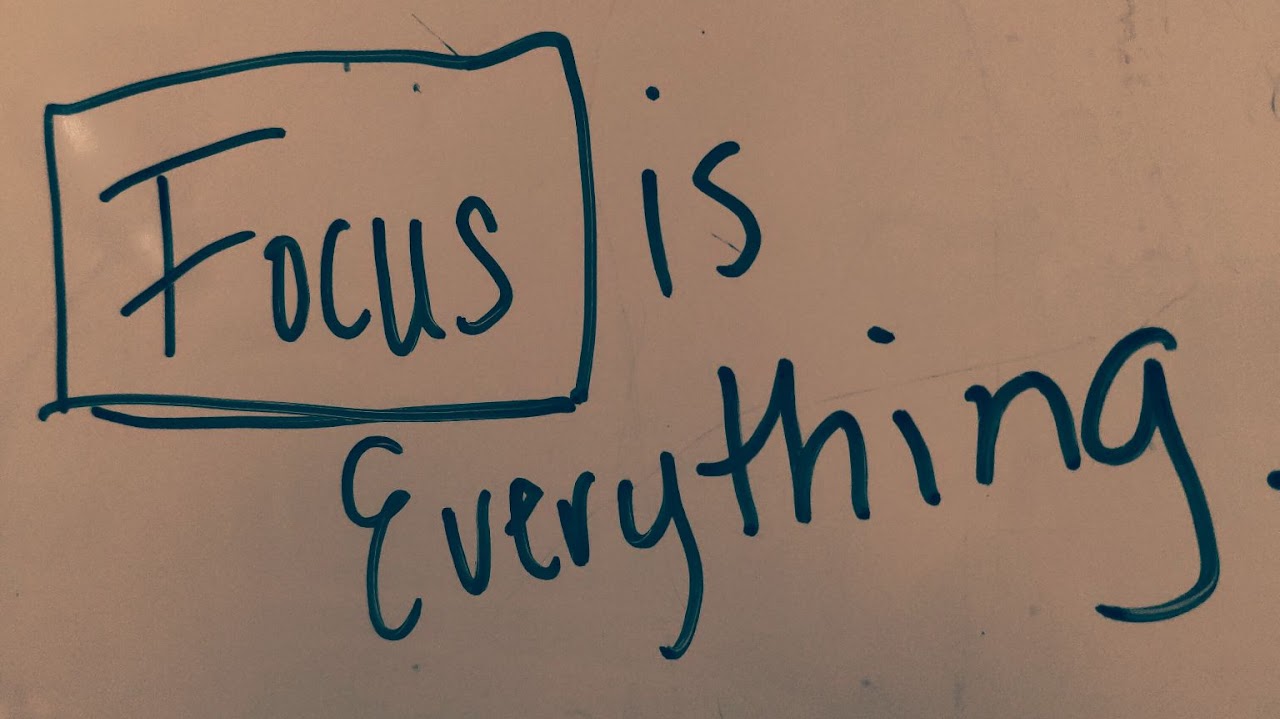 Focus is
Everything.